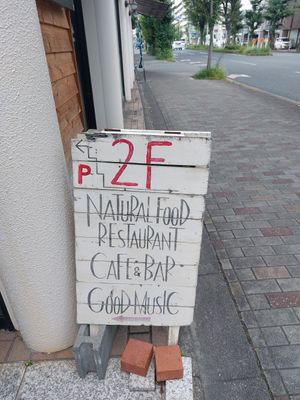 2F
P
NATURAL FOOD
RESTAURANT
CAFE & BAR
GOOD MUSIC